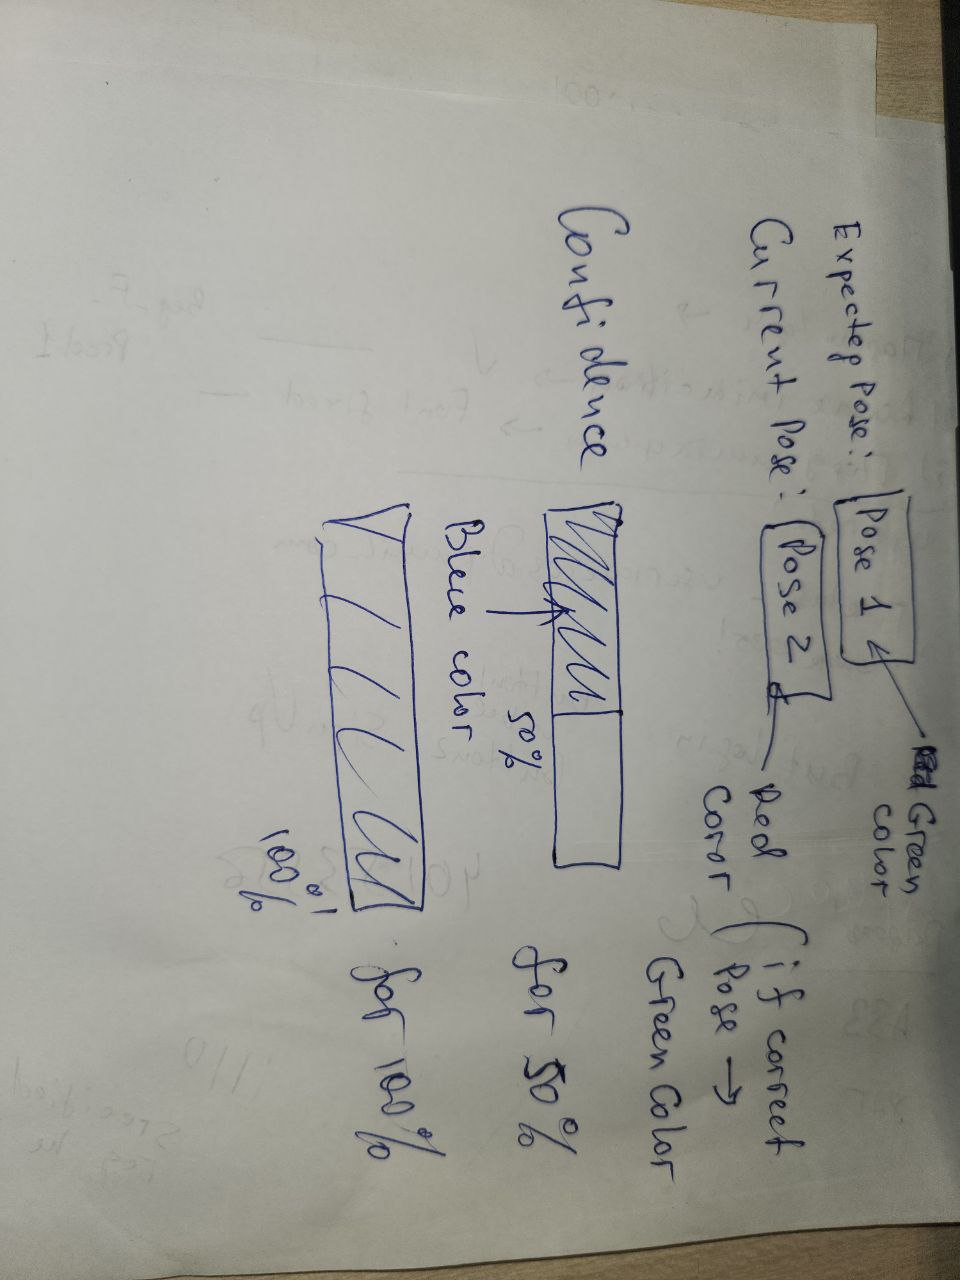 Expecteg Pose: Pose 1
Green
color
Current Pose: Pose 2
Red
color
if correct
Pose →
Green Color
Confidence
50%
for 50%
Blue color
for 100%
100%